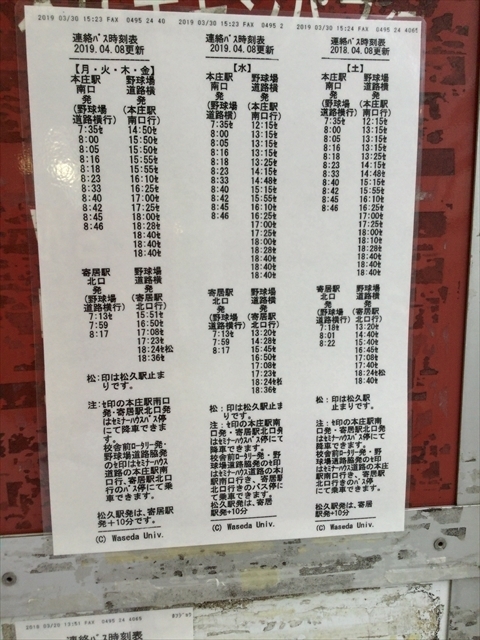 2019 03/30 15:23 FAX 0495 24 40
連絡ﾊﾞｽ時刻表
2019.04.08更新
【月・火・木・金】
本庄駅 野球場
南口 道路横
発 発
(野球場 (本庄駅
道路横行) 南口行)
7:35ｾ 14:50ｾ
8:00 15:50ｾ
8:05 15:50ｾ
8:16 15:55ｾ
8:18 15:55ｾ
8:23 16:10ｾ
8:33 16:25ｾ
8:40 17:00ｾ
8:42 17:25ｾ
8:45 18:00ｾ
8:46 18:28ｾ
18:40ｾ
18:40ｾ
寄居駅 野球場
北口 道路横
発 発
(野球場 (寄居駅
道路横行) 北口行)
7:13ｾ 15:51ｾ
7:59 16:50ｾ
8:17 17:08ｾ
17:23ｾ
18:24ｾ松
18:36ｾ
松:印は松久駅止ま
りです。
注:ｾ印の本庄駅南口
発・寄居駅北口発
はｾﾐﾅｰﾊｳｽﾊﾞｽ停に
て降車できま
す。
校舎前ﾛｰﾀﾘｰ発・
野球場道路脇発
のｾ印はｾﾐﾅｰﾊｳｽ
道路の本庄駅南
口行、寄居駅北口
行のﾊﾞｽ停にて乗
車できます。
松久駅発は、寄居駅
発+10分です。
(C) Waseda Univ.
2019 03/30 15:23 FAX 0495 2
連絡ﾊﾞｽ時刻表
2019.04.08更新
【水】
本庄駅 野球場
南口 道路横
発 発
(野球場 (本庄駅
道路横行) 南口行)
7:35ｾ 12:15ｾ
8:00 13:15ｾ
8:05 13:15ｾ
8:16 13:15ｾ
8:18 13:25ｾ
8:23 14:15ｾ
8:33 14:48ｾ
8:40 15:15ｾ
8:42 15:55ｾ
8:45 16:10ｾ
8:46 16:25ｾ
17:00ｾ
17:25ｾ
18:00ｾ
18:28ｾ
18:40ｾ
18:40ｾ
寄居駅 野球場
北口 道路横
発 発
(野球場 (寄居駅
道路横行) 北口行)
7:13ｾ 13:20ｾ
7:59 14:28ｾ
8:17 15:45ｾ
16:50ｾ
17:08ｾ
17:23ｾ
18:24ｾ
18:36ｾ
松:印は松久駅止ま
りです。
注:ｾ印の本庄駅南口
発・寄居駅北口発
はｾﾐﾅｰﾊｳｽﾊﾞｽ停に
て降車できます。
校舎前ﾛｰﾀﾘｰ発・野
球場道路脇発のｾ印
はｾﾐﾅｰﾊｳｽ道路の本
駅南口行き、寄居駅
北口行きのバス停に
て乗車できます。
松久駅発は、寄居
駅発+10分
(C) Waseda Univ.
2019 03/30 15:24 FAX 0495 24 4065
連絡ﾊﾞｽ時刻表
2018.04.08更新
【土】
本庄駅 野球場
南口 道路横
発 発
(野球場 (本庄駅
道路横行) 南口行)
7:35ｾ 12:15ｾ
8:00 13:15ｾ
8:05 13:15ｾ
8:16 13:15ｾ
8:18 13:25ｾ
8:23 14:15ｾ
8:33 14:48ｾ
8:40 15:15ｾ
8:42 15:55ｾ
8:45 16:10ｾ
8:46 16:25ｾ
17:00ｾ
17:25ｾ
18:00ｾ
18:10ｾ
18:28ｾ
18:40ｾ
18:40ｾ
寄居駅 野球場
北口 道路横
発 発
(野球場 (寄居駅
道路横行) 北口行)
7:18ｾ 13:20ｾ
8:01 14:40ｾ
8:22 15:40ｾ
16:40ｾ
17:08ｾ
17:40ｾ
18:24ｾ松
18:40ｾ
松:印は松久駅
止まりです。
注:ｾ印の本庄駅南
口発・寄居駅北口発
はｾﾐﾅｰﾊｳｽﾊﾞｽ停に
て降車できます。
校舎前ﾛｰﾀﾘｰ発・野
球場道路脇発のｾ印
はｾﾐﾅｰﾊｳｽ道路の本庄
駅南口行き、寄居駅
北口行きのバス停に
て乗車できます。
松久駅発は、寄居
駅発+10分
(C) Waseda Univ.
2019 03/30 13:51 FAX 0495 24 4065
連絡ﾊﾞｽ時刻表